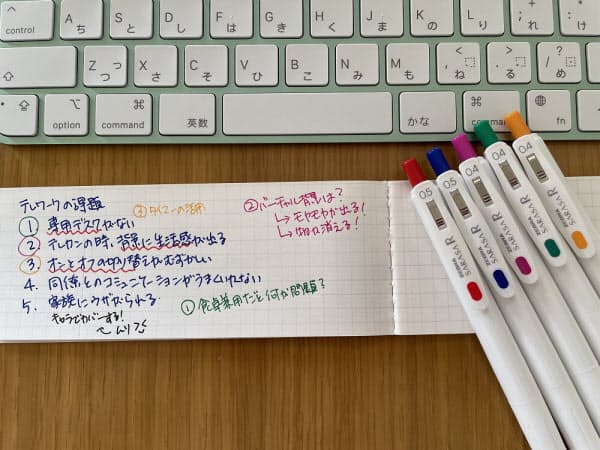 control
A ち
S と
D し
F は
G き
H く
J ま
K の
L り
+ ; れ
* : け
Z つ っ
X さ
C そ
V ひ
B こ
N み
M も
< , 、 ね
> . 。 る
? / ・ め
option
⌘ command
英数
かな
⌘ command
fn
テレワークの課題
① 専用デスクがない
② テレカンの時、背景に生活感が出る
③ オンとオフの切り替えがむずかしい
4. 同僚とのコミュニケーションがうまくいかない
5. 家族にウザがられる
キロクでカバーする!
③タイマーの活用
②バーチャル背景は?
↳ モヤモヤが出る!
↳ 物が消える!
①食卓兼用だと何が問題?
0.5
0.5
0.4
0.4
0.4
ZEBRA SARASA R
ZEBRA SARASA R
ZEBRA SARASA R
ZEBRA SARASA R
ZEBRA SARASA R